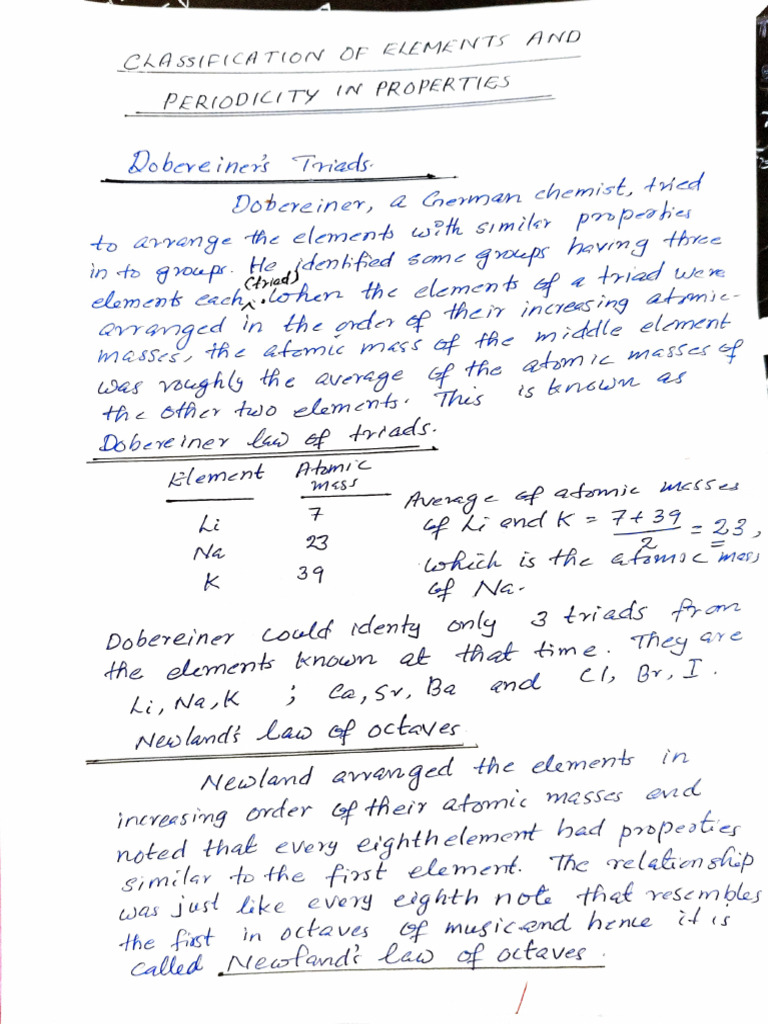 CLASSIFICATION OF ELEMENTS AND
PERIODICITY IN PROPERTIES
Dobereiner's Triads.
Dobereiner, a German chemist, tried
to arrange the elements with similar properties
in to groups. He identified some groups having three
elements each (triad). When the elements of a triad were
arranged in the order of their increasing atomic-
masses, the atomic mass of the middle element
was roughly the average of the atomic masses of
the other two elements. This is known as
Dobereiner law of triads.
Element Atomic mass
Li 7
Na 23
K 39
Average of atomic masses
of Li and K = 7+39/2 = 23,
which is the atomic mass
of Na.
Dobereiner could identy only 3 triads from
the elements known at that time. They are
Li, Na, K ; Ca, Sr, Ba and Cl, Br, I.
Newland's law of octaves
Newland arranged the elements in
increasing order of their atomic masses and
noted that every eighth element had properties
similar to the first element. The relationship
was just like every eighth note that resembles
the first in octaves of music and hence it is
called Newland's law of octaves.